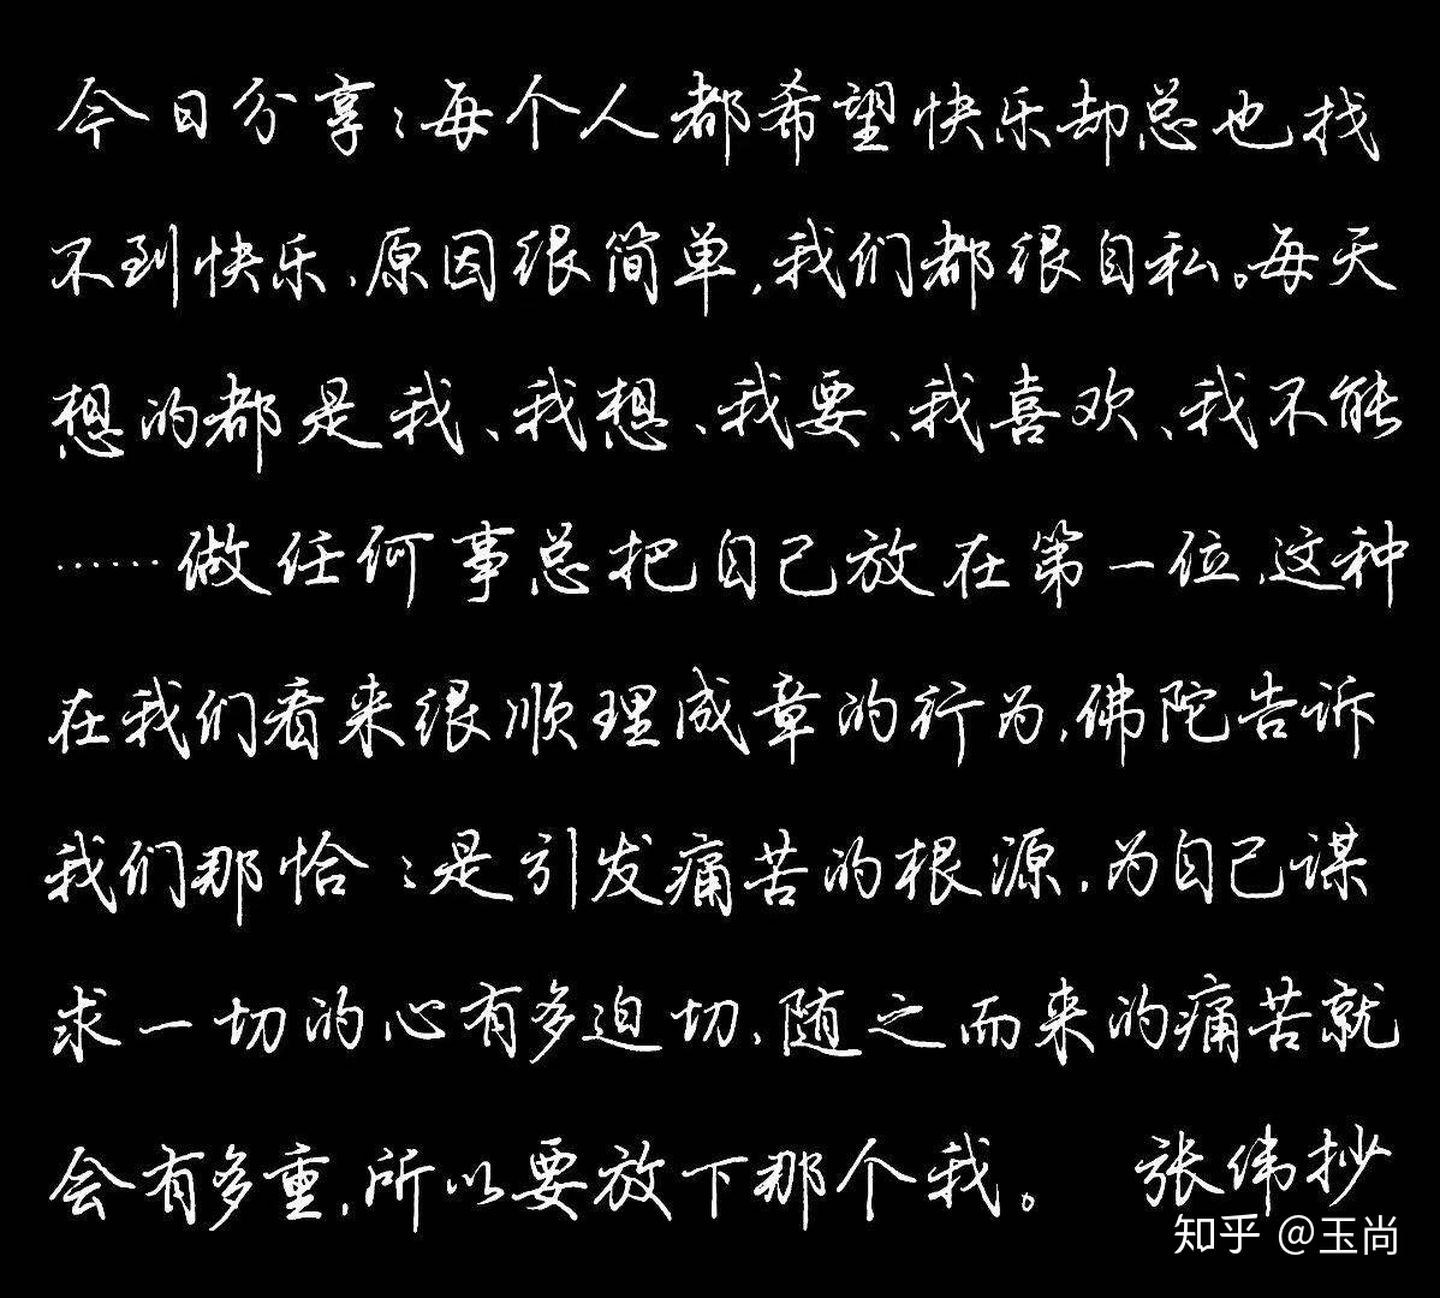 今日分享：每个人都希望快乐却总也找
不到快乐，原因很简单，我们都很自私。每天
想的都是我、我想、我要、我喜欢、我不能
……做任何事总把自己放在第一位，这种
在我们看来很顺理成章的行为，佛陀告诉
我们那恰恰是引发痛苦的根源，为自己谋
求一切的心有多迫切，随之而来的痛苦就
会有多重，所以要放下那个我。 张伟抄
知乎 @玉尚